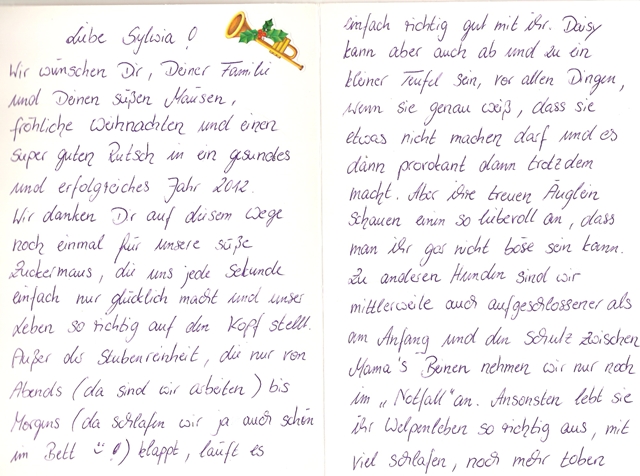 Liebe Sylvia !
Wir wünschen Dir, Deiner Familie
und Deinen süßen Mäusen,
fröhliche Weihnachten und einen
super guten Rutsch in ein gesundes
und erfolgreiches Jahr 2012.
Wir danken Dir auf diesem Wege
noch einmal für unsere süße
Zuckermaus, die uns jede Sekunde
einfach nur glücklich macht und unser
Leben so richtig auf den Kopf stellt.
Außer die Stubenreinheit, die nur von
Abends (da sind wir arbeiten) bis
Morgens (da schlafen wir ja auch schön
im Bett !) klappt, läuft es
einfach richtig gut mit ihr. Daisy
kann aber auch ab und zu ein
kleiner Teufel sein, vor allen Dingen,
wenn sie genau weiß, dass sie
etwas nicht machen darf und es
dann provokant dann trotzdem
macht. Aber ihre treuen Äuglein
schauen einen so liebevoll an, dass
man ihr gar nicht böse sein kann.
Zu anderen Hunden sind wir
mittlerweile auch aufgeschlossener als
am Anfang und den Schutz zwischen
Mama's Beinen nehmen wir nur noch
im „Notfall" an. Ansonsten lebt sie
ihr Welpenleben so richtig aus, mit
viel schlafen, noch mehr toben